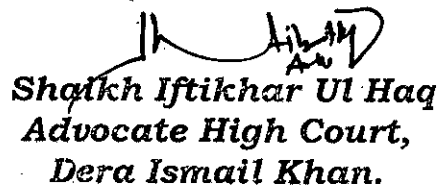 Shaikh Iftikhar Ul Haq
Advocate High Court,
Dera Ismail Khan.